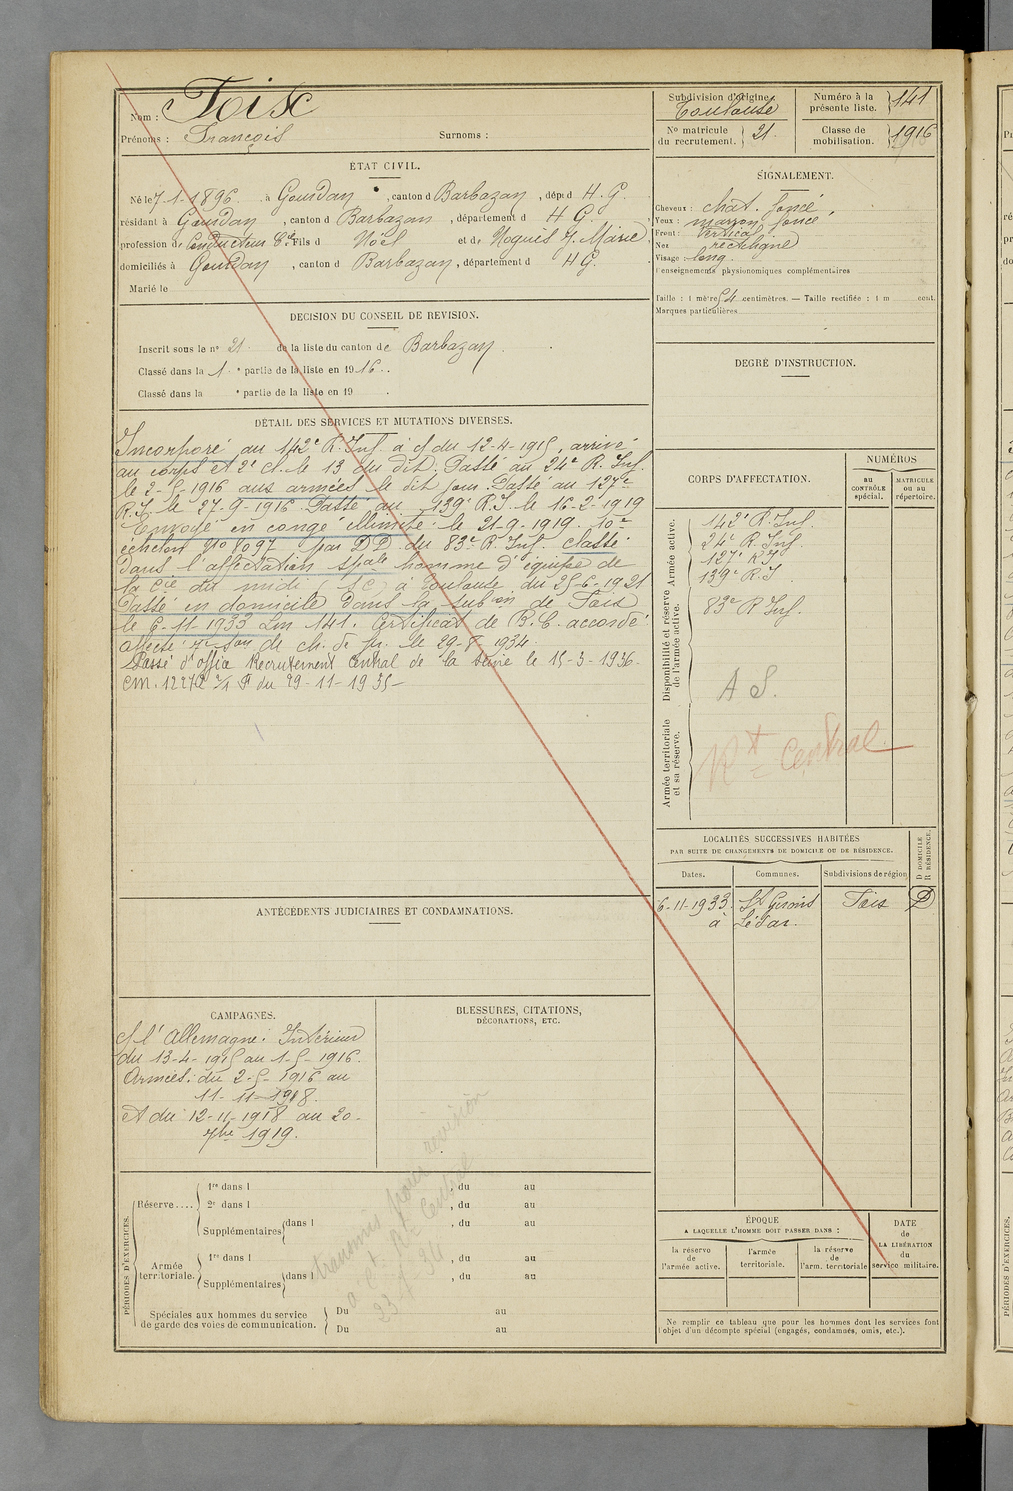 Nom : Foix
Prénoms : François Surnoms :
Subdivision d'origine
Toulouse
Numéro à la présente liste. 141
No matricule du recrutement. 21.
Classe de mobilisation. 1916
ÉTAT CIVIL.
Né le 7-1-1896. à Gourdan, canton d Barbazan, dépt d H. G.
résidant à Gourdan, canton d Barbazan, département d H G.
profession de Conducteur Fils d Noël et de Noguès J. Marie
domiciliés à Gourdan, canton d Barbazan, département d H G.
Marié le
SIGNALEMENT.
Cheveux : chat. foncé
Yeux : marron foncé
Front : vertical
Nez rectiligne
Visage : long.
Renseignements physionomiques complémentaires
Taille : 1 mètre 54 centimètres. — Taille rectifiée : 1 m cent.
Marques particulières
DÉCISION DU CONSEIL DE REVISION.
Inscrit sous le no 21 de la liste du canton de Barbazan.
Classé dans la 1. e partie de la liste en 1916.
Classé dans la e partie de la liste en 19
DEGRÉ D'INSTRUCTION.
DÉTAIL DES SERVICES ET MUTATIONS DIVERSES.
Incorporé au 142e R. Inf. à c/ du 12-4-1915, arrivé
au corps et 2e cl. le 13 du dit. Passé au 24e R. Inf.
le 2-5-1916 aux armées le dit jour. Passé au 127e
R.I. le 27-9-1916. Passé au 139e R.I. le 16-2-1919
Envoyé en congé illimité le 21-9-1919. 10e
échelon No 8097 par DD du 83e R. Inf. Classé
dans l'affectation spale homme d'équipe de
la Cie du midi à Toulouse du 25-6-1921
Passé en domicile dans la subon de Foix
le 6-11-1933 Lm 141. Certificat de B.C. accordé.
Affecté 4e Son de ch. de fr. le 29-8-1934
Passé d'office Recrutement Central de la Seine le 15-3-1936.
CM. 12272 2/1 P du 29-11-1935
CORPS D'AFFECTATION.
NUMÉROS
au CONTRÔLE spécial.
MATRICULE ou au répertoire.
Armée active.
142e R. Inf.
24e R. Inf.
127e R I
139e R. I
Disponibilité et réserve de l'armée active.
83e R Inf.
A S.
Armée territoriale et sa réserve.
Rt Central
LOCALITÉS SUCCESSIVES HABITÉES
PAR SUITE DE CHANGEMENTS DE DOMICILE OU DE RÉSIDENCE.
D DOMICILE R RÉSIDENCE.
Dates. Communes. Subdivisions de région
6-11-1933. St Girons Foix D
à Lédar.
ANTÉCÉDENTS JUDICIAIRES ET CONDAMNATIONS.
CAMPAGNES.
C/ l'Allemagne : Intérieur
du 13-4-1915 au 1-5-1916.
Armées : du 2-5-1916 au
11-11-1918.
et du 12-11-1918 au 20-
7bre 1919.
BLESSURES, CITATIONS,
DÉCORATIONS, ETC.
transmis pour revision
à Ct Rt Central
PÉRIODES D'EXERCICES.
Réserve....
1re dans l , du au
2e dans l , du au
Supplémentaires dans l , du au
Armée territoriale.
1re dans l , du au
Supplémentaires dans l , du au
Spéciales aux hommes du service de garde des voies de communication.
Du au
Du au
ÉPOQUE
A LAQUELLE L'HOMME DOIT PASSER DANS :
la réserve de l'armée active.
l'armée territoriale.
la réserve de l'arm. territoriale
DATE de LA LIBÉRATION du service militaire.
Ne remplir ce tableau que pour les hommes dont les services font
l'objet d'un décompte spécial (engagés, condamnés, omis, etc.).